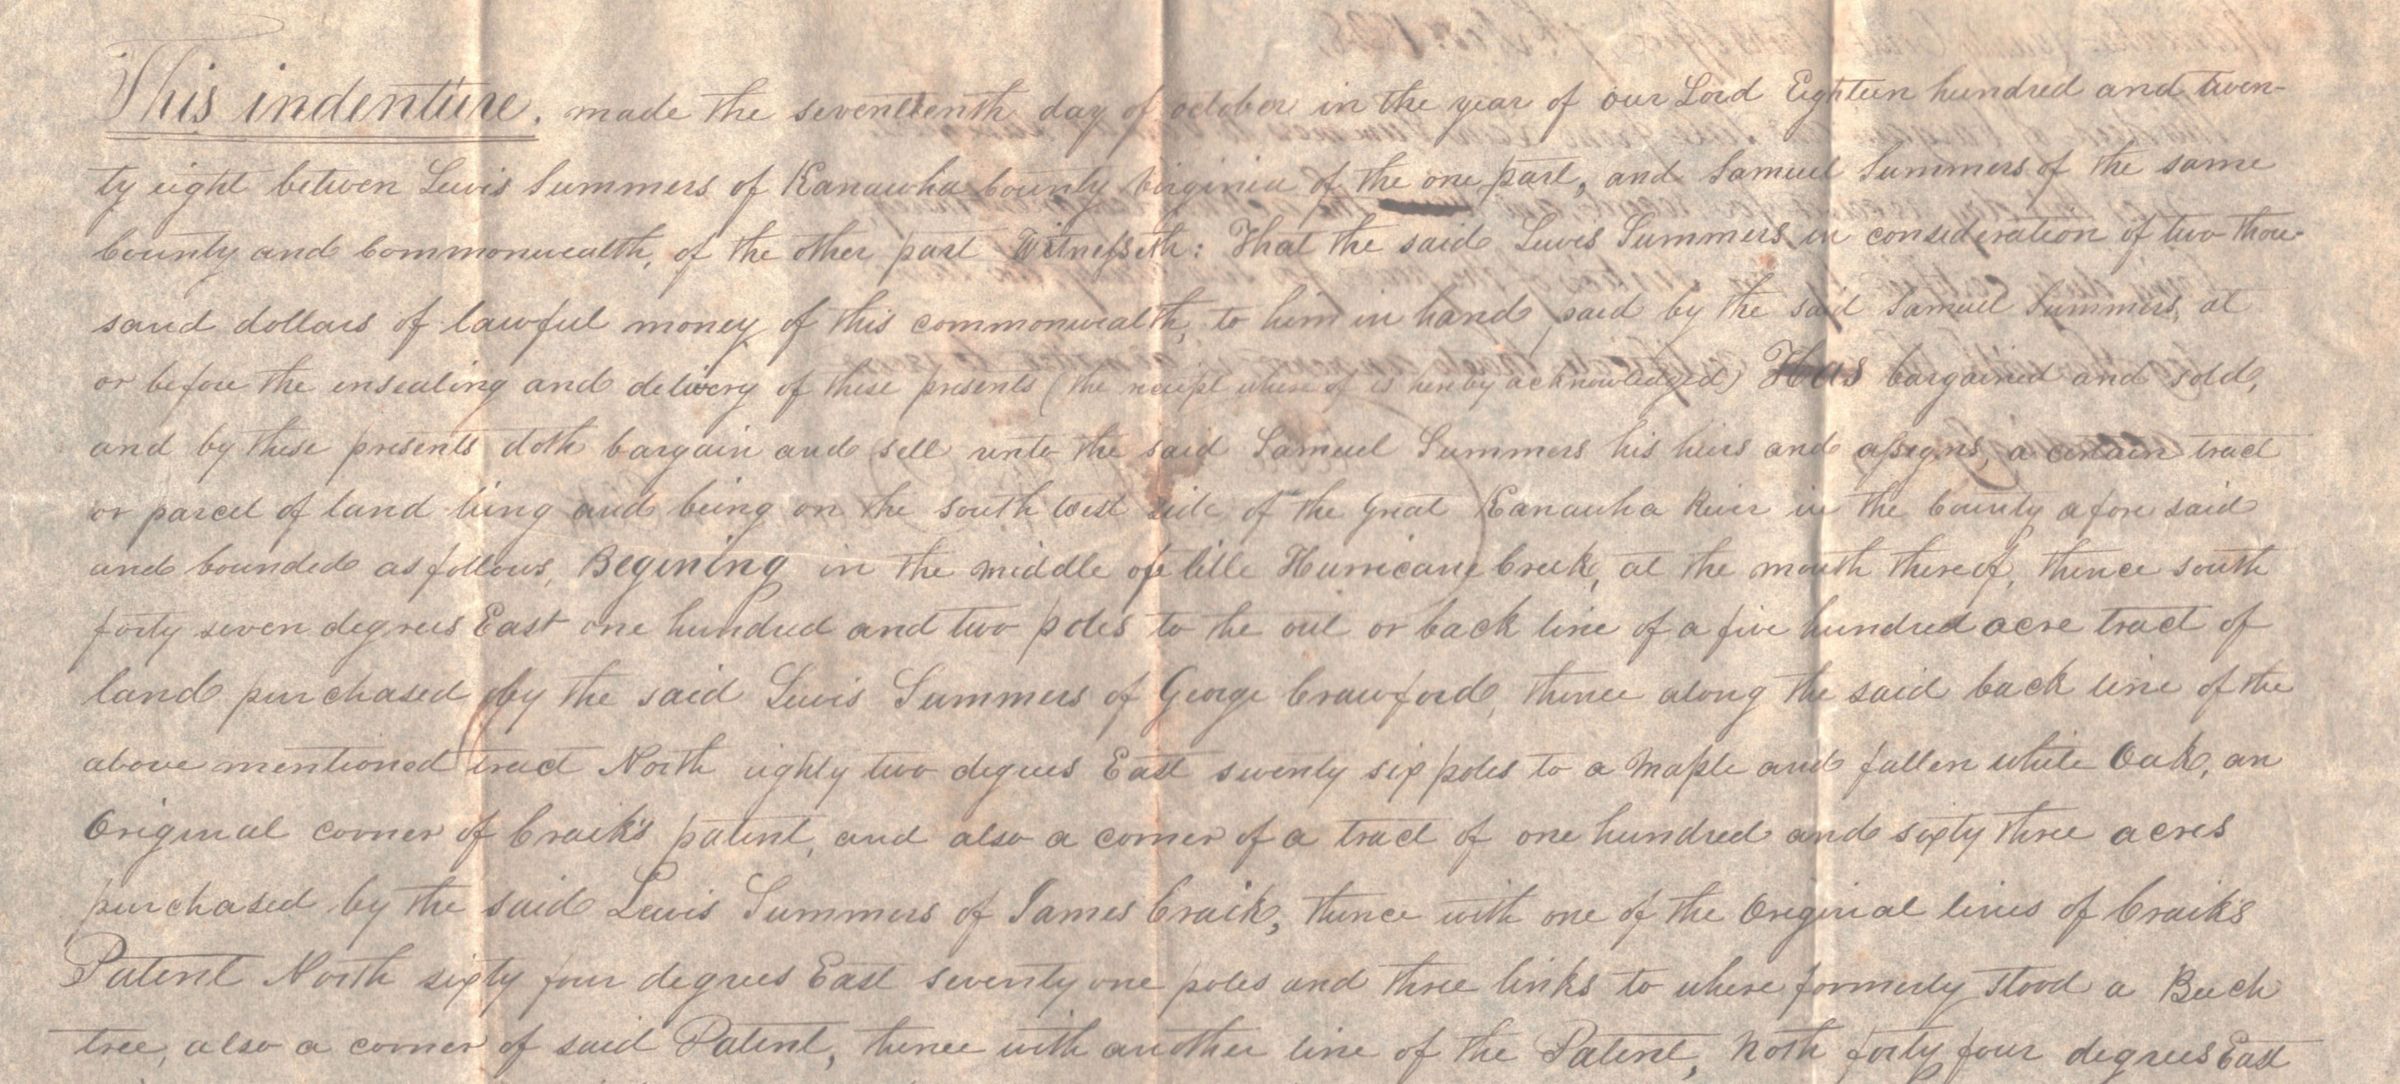 This indenture, made the seventeenth day of october in the year of our Lord Eighteen hundred and twen-
ty eight between Lewis Summers of Kanawha County Virginia of the one part, and Samuel Summers of the same
County and Commonwealth, of the other part Witnesseth: That the said Lewis Summers in consideration of two thou-
sand dollars of lawful money of this commonwealth, to him in hand paid by the said Samuel Summers, at
or before the ensealing and delivery of these presents (the receipt where of is hereby acknowledged) Has bargained and sold,
and by these presents doth bargain and sell unto the said Samuel Summers his heirs and assigns, a certain tract
or parcel of land lying and being on the south west side of the great Kanawha River in the County afore said
and bounded as follows, Begining in the middle of little Hurricane Creek, at the mouth thereof, thence south
forty seven degrees East one hundred and two poles to the out or back line of a five hundred acre tract of
land purchased by the said Lewis Summers of George Crawford, thence along the said back line of the
above mentioned tract North eighty two degrees East seventy six poles to a Maple and fallen white Oak, an
Original corner of Craik's patent, and also a corner of a tract of one hundred and sixty three acres
purchased by the said Lewis Summers of James Craik, thence with one of the Original lines of Craik's
Patent North sixty four degrees East seventy one poles and three links to where formerly stood a Beech
tree, also a corner of said Patent, thence with another line of the Patent, North forty four degrees East